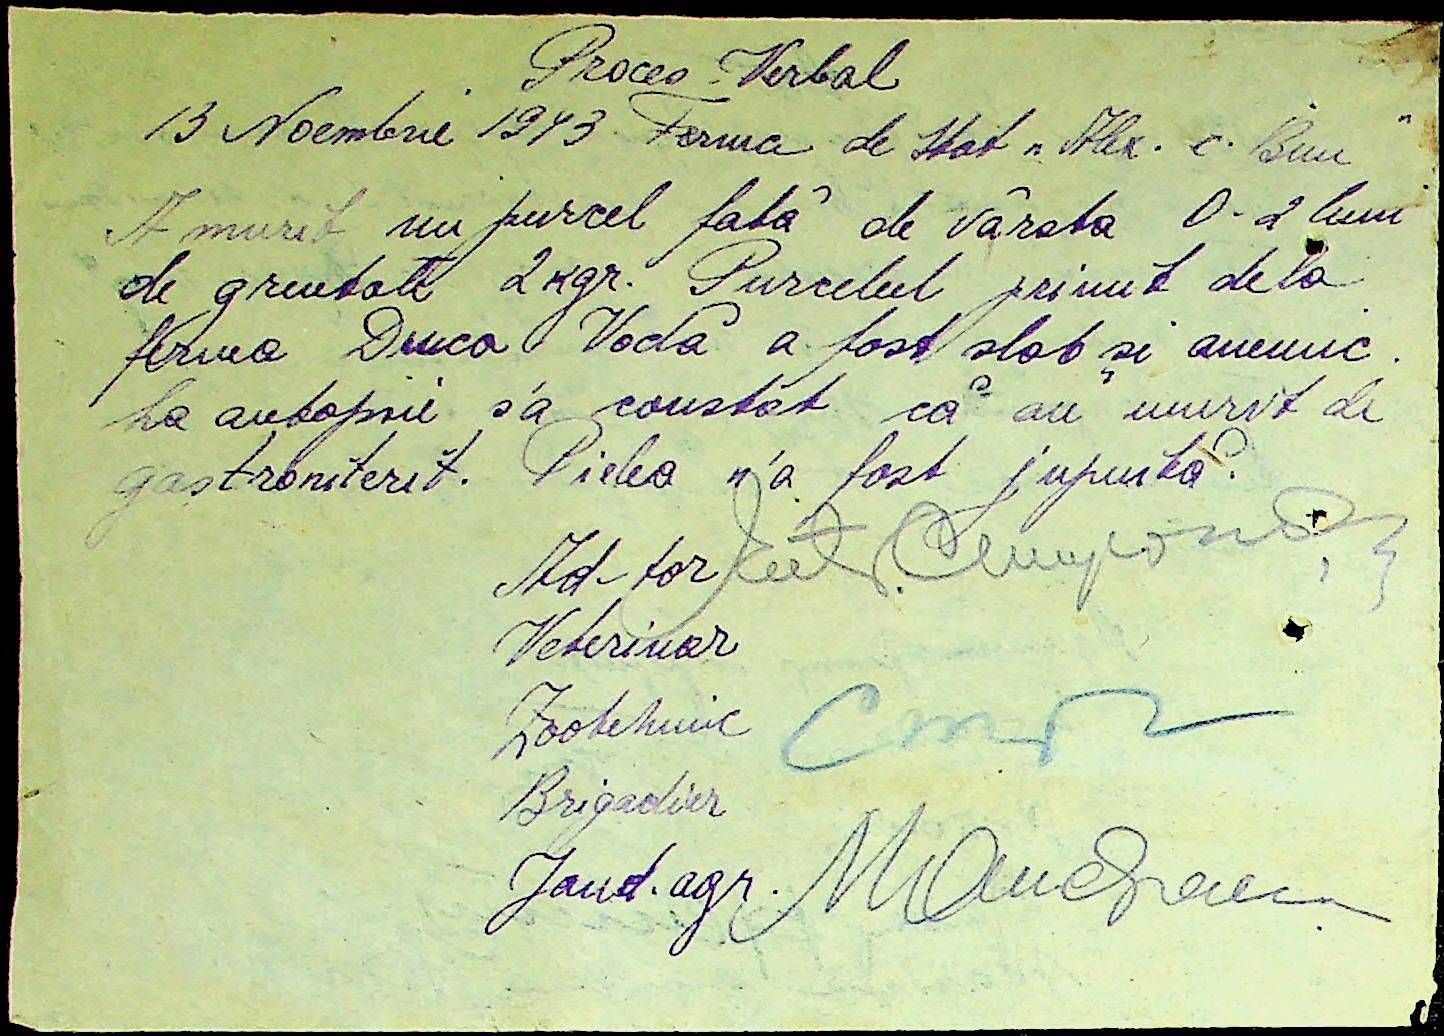 Proces-Verbal
13 Noembrie 1943 Ferma de Stat „Alex. c. Bun"
A murit un purcel fată de vârsta 0-2 luni
de greutate 2 kgr. Purcelul primit dela
ferma Duca Vodă a fost slab și anemic.
La autopsie s'a constat că au murit de
gastroniterit. Pielea n'a fost jupuită.
Ad-tor
Veterinar
Zootehnic
Brigadier
Jand. agr.